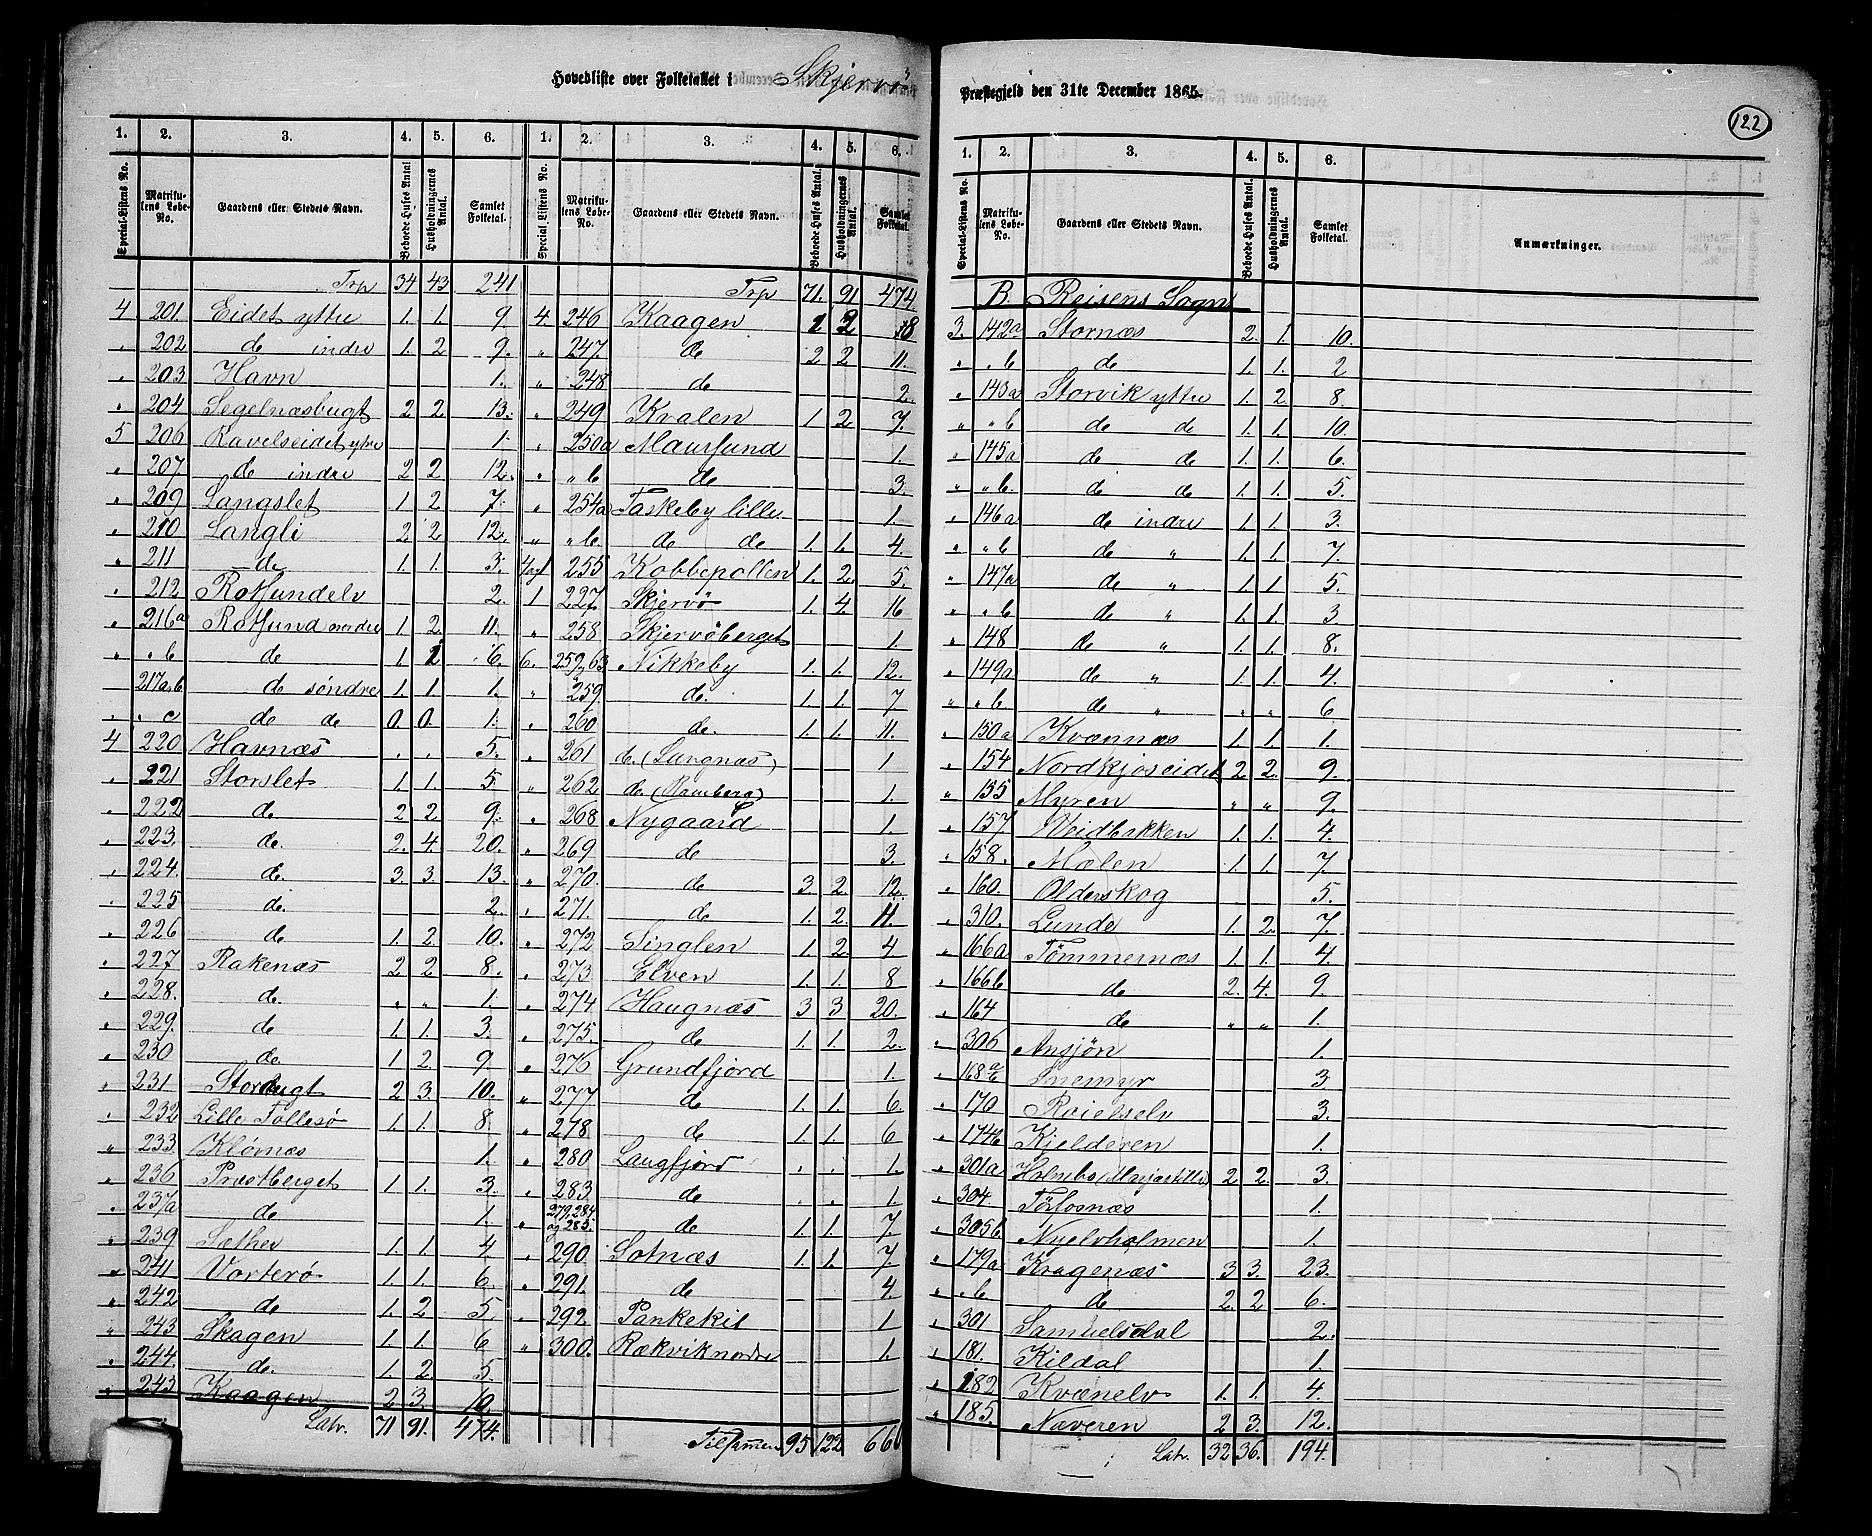 Hovedliste over Folketallet i Skjervö
Præstegjeld den 31te December 1865.
122
1. 2. 3. 4. 5. 6. 1. 2. 3. 4. 5. 6.
Special-Listens No. Matrikulens Løbe-No. Gaardens eller Stedets Navn. Beboede Huses Antal Husholdningernes Antal. Samlet Folketal. Special Listens No. Matrikulens Løbe-No. Gaardens eller Stedets Navn. Beboede Huses Antal. Husholdningernes Antal. Samlet Folketal.
Trp 34 43 241
4 201. Eidet yttre 1. 1. 9.
" 202 do indre 1. 2 9.
" 203 Havn 1.
" 204 Segelnæsbugt 2 2. 13.
5 206 Ravelseidet ytre 1.
" 207 do indre 2 2 12.
" 209 Langslet 1 2 7.
" 210 Langli 2 2 12.
" 211 do 1. 1. 3.
" 212 Rotsundelv 2.
" 216a Rotsund nordre 1. 2 11.
" " b do 1. 1 6.
217a.b do søndre 1. 1. 1.
" " c do do 0. 0. 1.
4 220 Havnæs . . 5.
" 221 Storslet 1. 1. 5
" 222 do 2 2 9.
" 223. do. 2. 4. 20.
" 224. do. 3. 3. 13.
" 225 do. 2.
" 226 do 1. 2. 10.
" 227 Rakenæs 2 2 8.
" 228. do. " " 1.
" 229. do 1. 1. 3.
" 230 do. 1 2. 9
" 231 Storbugt 2 3. 10.
" 232 Lille Follesø 1. 1. 8
" 233. Klørnæs 1.
" 236 Præstberget 1 1. 3.
" 237a do 1.
" 239 Sæther 1. 1. 4.
" 241 Vorterø 1. 1. 6
" 242 do 1. 2 5
" 243 Skagen 1. 1. 6
" 244. do. 1. 2 5.
" 245 Kaagen 2 3. 10.
Latr. 71 91. 474.
Trp 71. 91 474
4. 246 Kaagen 1 2 8
" 247. do 2 2 11.
" 248 do 2.
" 249 Kvalen 1 2 7.
" 250a Maursund 1.
" " b do 3.
" 254a Taskeby lille 1.
" " b. do do 1. 1. 4.
4og1 255 Kobbepollen 1. 2. 5.
1 227. Skjervø 1. 4. 16
" 258 Skjervöberget 1.
6. 259,63 Nikkeby 1. 1. 12.
" 259 do. 1. 1. 7
" 260 do. 1. 1. 11.
" 261 do. (Langnæs) 1
" 262 do (Ramberg) 1.
" 268 Nygaard 1.
" 269 do 3.
" 270. do 3 2. 12.
" 271. do 1. 2. 11.
" 272 Singlen 1. 2 4
" 273 Elven 1. 1. 8
" 274 Haugnæs 3 3 20.
" 275. do 1 1. 2.
" 276 Grundfjord 1.
" 277 do 1. 1. 6.
" 278 do 1 1. 6
" 280 Langfjord . . 1.
" 283. do . . 1.
" 279,284 og 285. do 1 1. 7.
" 290 Sotnæs 1 1. 7.
" 291. do 4.
" 292 Pankekil 1
" 300. Rækvik nordre 1.
Tilsammen 95 122 666
1. 2. 3. 4. 5. 6.
Special-Listens No. Matrikulens Løbe-No. Gaardens eller Stedets Navn. Beboede Huses Antal. Husholdningernes Antal. Samlet Folketal. Anmærkninger.
B. Reisens Sogn
3. 142a Stornæs 2. 1. 10.
" " b do 1. 1. 2
" 143a Storvik yttre 1. 2 8.
" " b do do 1. 1. 10.
" 145a do do 1. 1. 6.
" " b. do do 1. 1. 5.
" 146a do indre 1. 1. 3.
" " b do " 1. 1. 7.
" 147a do " 1. 1. 5
" " b do " 1. 1. 3
" 148 do " 1. 1. 8.
" 149a do " 1. 1. 4.
" " b do " " " 6
" 150a Kvænnæs 1. 1. 1.
" 154 Nordkjoseidet 2. 2. 9.
" 155 Myren " " 9.
" 157 Weidbakken 1. 1. 4.
" 158. Mælen 1. 1. 7.
" 160. Olderskog 5.
" 310. Lunde 1. 2. 7.
" 166a Tömmernæs 1. 1. 4
" 166b do 2. 4. 9.
" 164 do " " 1.
" 306 Ansjön 1.
" 168 a b Snemyr 3
" 170 Roielselv 3.
" 174b Kjelderen 1.
" 301a Holmbo 2 2. 3.
" 304 1.
" 305b Nyelvholmen 1.
" 179a Kragenæs 3 3. 23.
" " b. do 2. 2 6.
" 301 Samuelsdal 2.
" 181. Kildal 1.
" 182 Kvænelv 1. 1. 4.
" 185. Naveren 2 3. 12.
Latr. 32 36. 194.